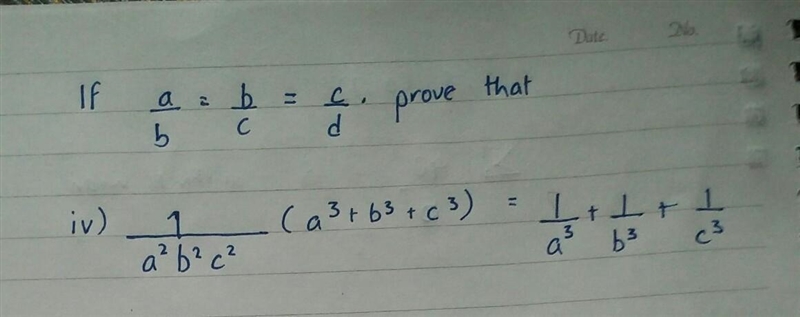 Date No.
If a/b = b/c = c/d. prove that
iv) 1/(a²b²c²) (a³+b³+c³) = 1/a³ + 1/b³ + 1/c³